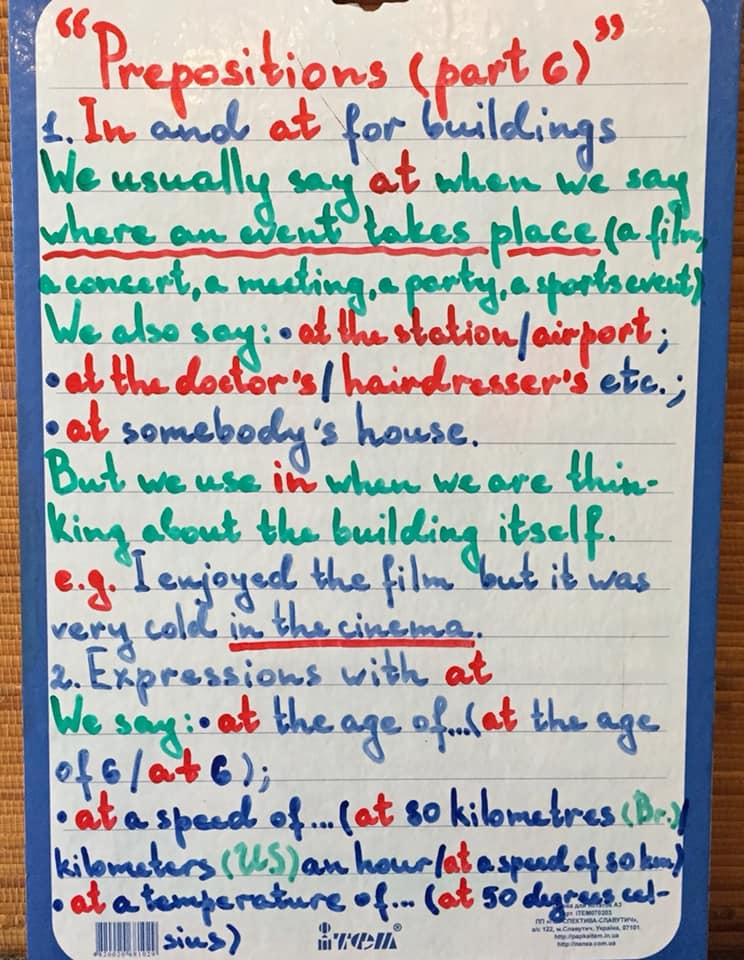 "Prepositions (part 6)"
1. In and at for buildings
We usually say at when we say
where an event takes place (a film,
a concert, a meeting, a party, a sports event)
We also say: • at the station/airport;
• at the doctor's / hairdresser's etc.;
• at somebody's house.
But we use in when we are thin-
king about the building itself.
e.g. I enjoyed the film but it was
very cold in the cinema.
2. Expressions with at
We say: • at the age of...(at the age
of 6 / at 6);
• at a speed of ... (at 80 kilometres (Br.)/
kilometers (US) an hour/at a speed of 80 km)
• at a temperature of... (at 50 degrees cel-
sius)
ітем®
арт. ITEM070203
а/с 122, м.Славутич, Україна, 07101.
http://papkaitem.in.ua